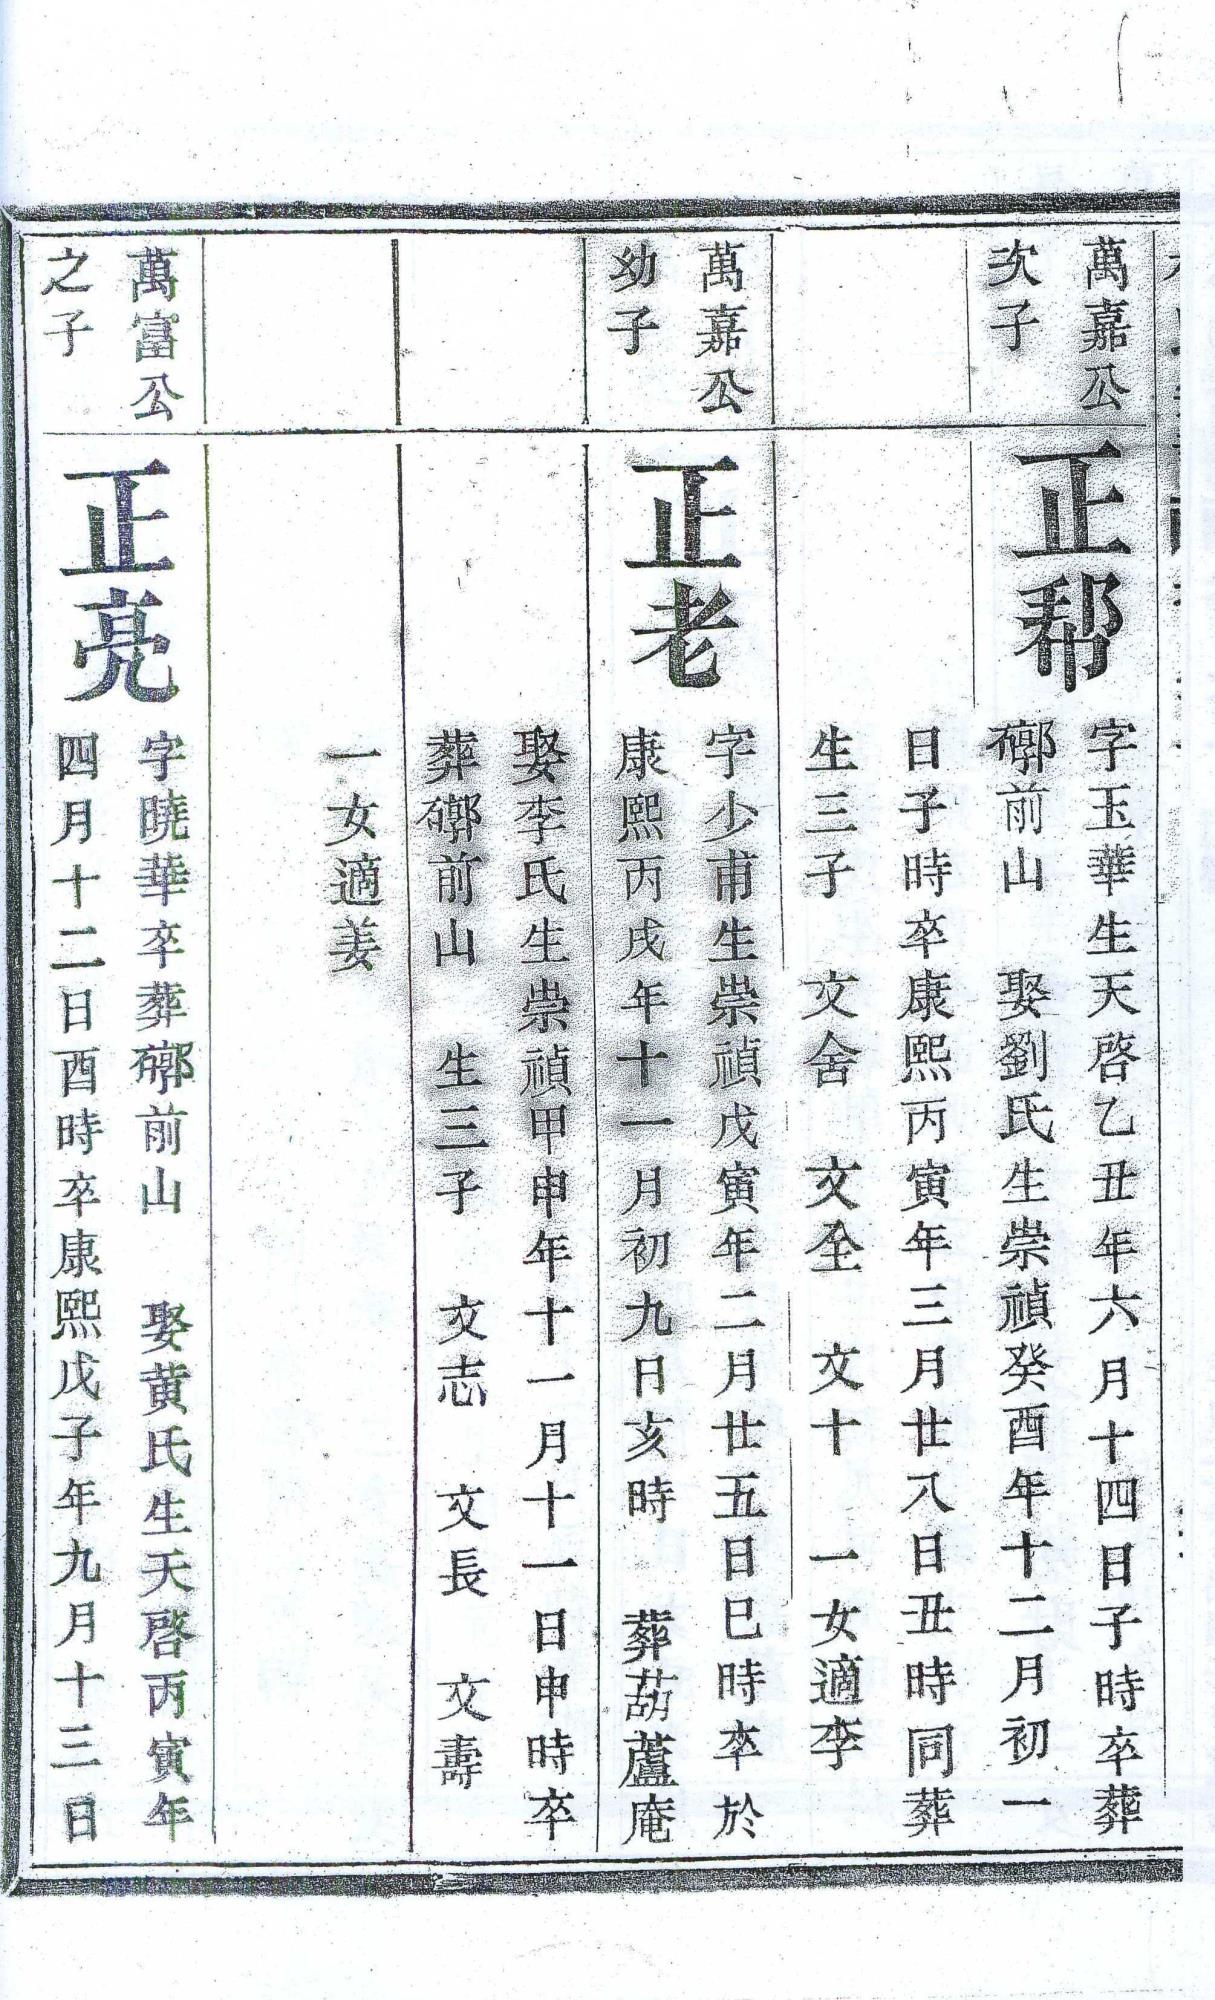 萬嘉公
次子
正帮
字玉華生天啓乙丑年六月十四日子時卒葬
鄉前山 娶劉氏生崇禎癸酉年十二月初一
日子時卒康熙丙寅年三月廿八日丑時同葬
生三子 文舍 文全 文十 一女適李
萬嘉公
幼子
正老
字少甫生崇禎戊寅年二月廿五日巳時卒於
康熙丙戌年十一月初九日亥時 葬葫蘆庵
娶李氏生崇禎甲申年十一月十一日申時卒
葬鄉前山 生三子 文志 文長 文壽
一女適姜
萬富公
之子
正亮
字曉華卒葬鄉前山 娶黄氏生天啓丙寅年
四月十二日酉時卒康熙戊子年九月十三日